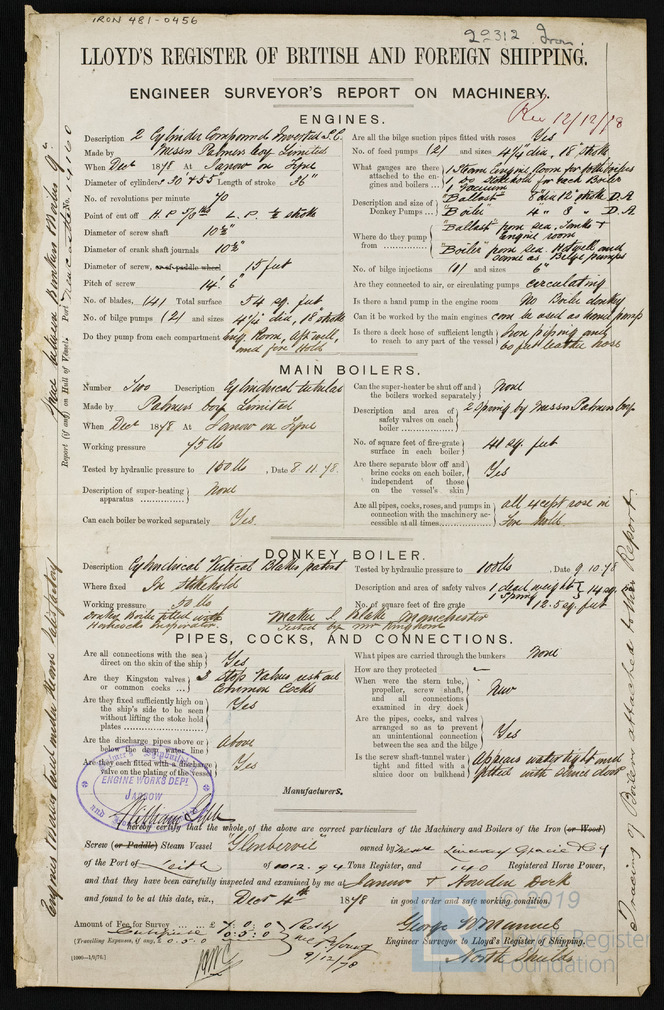 IRON 481-0456
29312 Iron
LLOYD'S REGISTER OF BRITISH AND FOREIGN SHIPPING.
ENGINEER SURVEYOR'S REPORT ON MACHINERY.
Rec 12/12/78
ENGINES.
Description 2 Cylinder Compound Inverted S.C.
Made by Messrs Palmers Coy Limited
When Decr 1878 At Jarrow on Tyne
Diameter of cylinders 30" & 55" Length of stroke 36"
No. of revolutions per minute 70
Point of cut off H.P. L.P. stroke
Diameter of screw shaft 10½"
Diameter of crank shaft journals 10½"
Diameter of screw, or of paddle wheel 15 feet
Pitch of screw 14' 6"
No. of blades, (4) Total surface 54 sq. feet
No. of bilge pumps (2) and sizes 4¼" dia, 18" stroke
Do they pump from each compartment Eng. Room, Aft well, and fore Hold
Are all the bilge suction pipes fitted with roses Yes
No. of feed pumps (2) and sizes 4¼" dia, 18" stroke
What gauges are there attached to the engines and boilers 1 Steam engine Room for both boilers
1 do Stokehold for each Boiler
1 Vacuum
Description and size of Donkey Pumps "Ballast" 8" dia 12" stroke D.A
"Boiler" 4" 8" D.A
Where do they pump from "Ballast" from sea, Tanks & engine room
"Boiler" from sea Hotwell and same as Bilge pumps
No. of bilge injections (1) and sizes 6"
Are they connected to air, or circulating pumps circulating
Is there a hand pump in the engine room No Boiler donkey
Can it be worked by the main engines can be used as hand pump
Is there a deck hose of sufficient length to reach to any part of the vessel Iron piping and 60 feet leather hose
MAIN BOILERS.
Number Two Description Cylindrical tubular
Made by Palmers Coy Limited
When Decr 1878 At Jarrow on Tyne
Working pressure 75 lbs
Tested by hydraulic pressure to 150 lbs, Date 8.11.78.
Description of super-heating apparatus None
Can each boiler be worked separately Yes.
Can the super-heater be shut off and the boilers worked separately None
Description and area of safety valves on each boiler 2 Spring by Messrs Palmers Coy
No. of square feet of fire-grate surface in each boiler 41 sq. feet
Are there separate blow off and brine cocks on each boiler, independent of those on the vessel's skin Yes
Are all pipes, cocks, roses, and pumps in connection with the machinery accessible at all times all except rose in Fore Hold
DONKEY BOILER.
Description Cylindrical Vertical Blakes patent
Where fixed In Stokehold
Working pressure 50 lbs
Donkey boiler fitted with Hancocks Inspirator
Tested by hydraulic pressure to 100 lbs, Date 9.10.78
Description and area of safety valves 1 dead weight 1 Spring } 14 sq. in
No. of square feet of fire grate 12.5 sq. feet
Maker J. Blake Manchester
Tested by Mr Kinghorn
PIPES, COCKS, AND CONNECTIONS.
Are all connections with the sea direct on the skin of the ship Yes
Are they Kingston valves or common cocks 3 Stop Valves rest are Common Cocks
Are they fixed sufficiently high on the ship's side to be seen without lifting the stoke hold plates Yes
Are the discharge pipes above or below the deep water line above
Are they each fitted with a discharge valve on the plating of the vessel Yes
What pipes are carried through the bunkers None
How are they protected "
When were the stern tube, propeller, screw shaft, and all connections examined in dry dock New
Are the pipes, cocks, and valves arranged so as to prevent an unintentional connection between the sea and the bilge Yes
Is the screw shaft-tunnel water tight and fitted with a sluice door on bulkhead Appears water tight and fitted with sluice door
Manufacturers.
ENGINE WORKS DEPT.
JARROW
I hereby certify that the whole of the above are correct particulars of the Machinery and Boilers of the Iron (or Wood)
Screw (or Paddle) Steam Vessel "Glenbervie" owned by Messrs Lindsay Gracie & Co
of the Port of Leith of 1012.94 Tons Register, and 140 Registered Horse Power,
and that they have been carefully inspected and examined by me at Jarrow & Howdon Dock
and found to be at this date, viz., Decr 4th 1878 in good order and safe working condition.
Amount of Fee for Survey £ 7:0:0 Recd by
Certificate 0:5:0
(Travelling Expenses, if any, £ 0.5.0 Young
9/12/78
George W Manuel
Engineer Surveyor to Lloyd's Register of Shipping.
North Shields
[1000—1/6/78.]
Report (if any) on Hull of Vessel. Port Newcastle No. 14160
Engines Tried and under steam Satisfactory
Tracing of Boilers attached to this Report.
© 2019
Lloyd's Register
Foundation